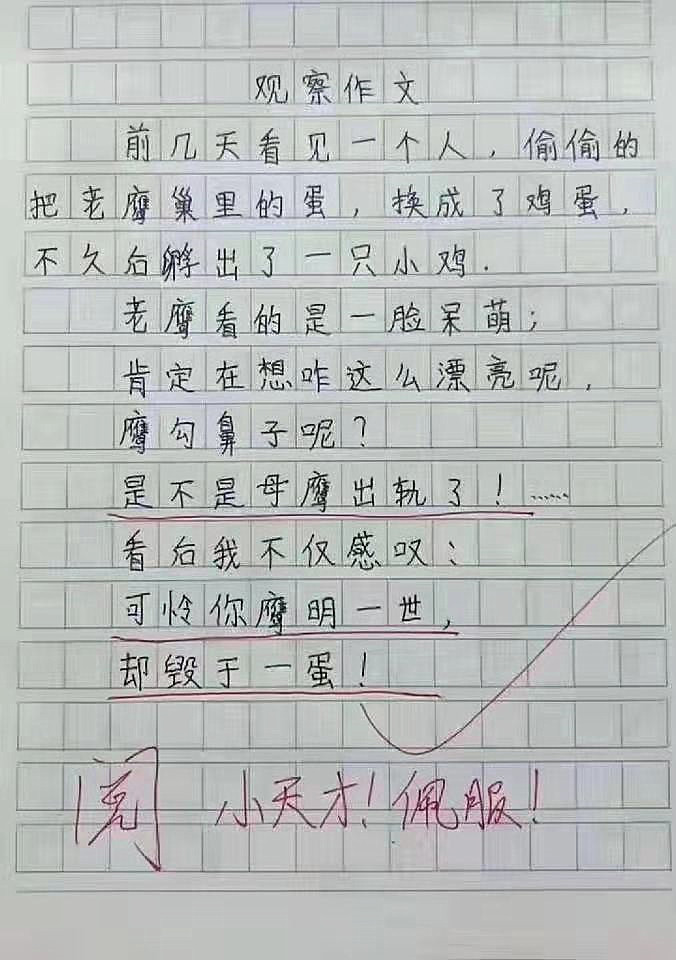 观察作文
前几天看见一个人，偷偷的
把老鹰巢里的蛋，换成了鸡蛋，
不久后孵出了一只小鸡.
老鹰看的是一脸呆萌；
肯定在想咋这么漂亮呢，
鹰勾鼻子呢？
是不是母鹰出轨了！……
看后我不仅感叹：
可怜你鹰明一世，
却毁于一蛋！
阅 小天才！佩服！